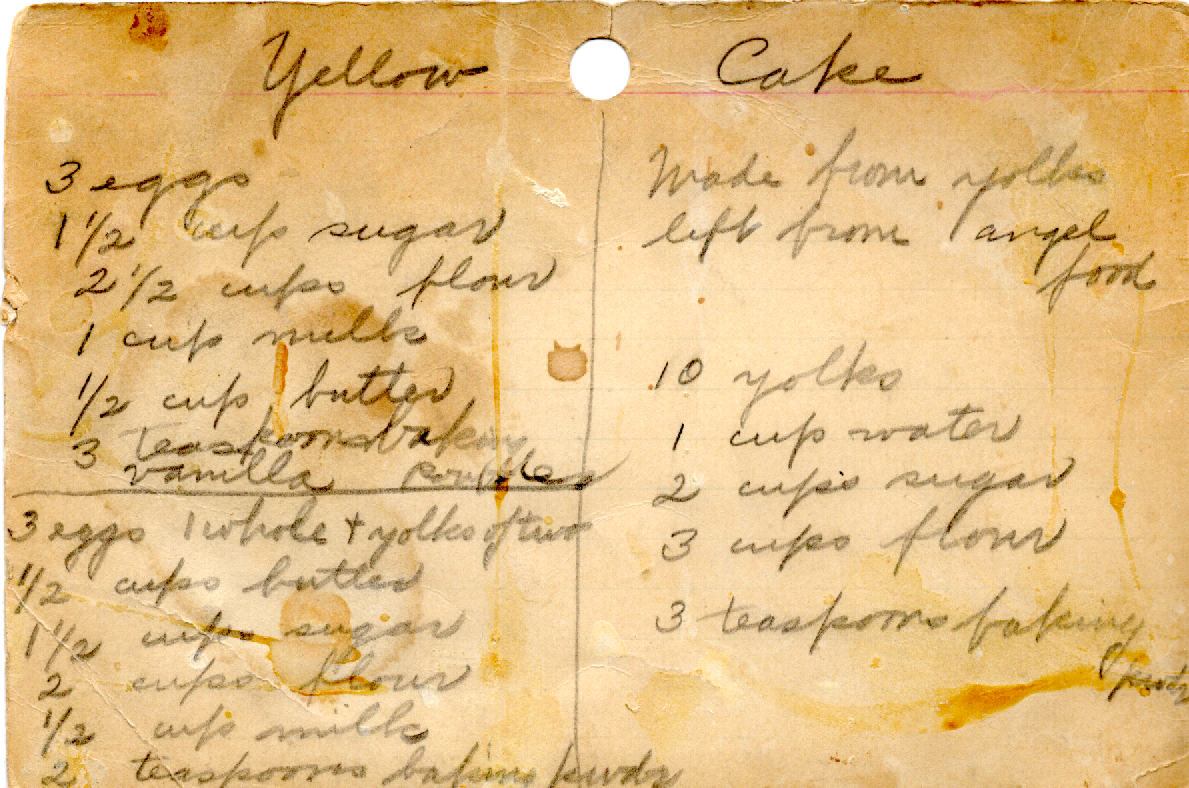 Yellow Cake
3 eggs
1 1/2 cups sugar
2 1/2 cups flour
1 cup milk
1/2 cup butter
3 teaspoons baking
vanilla powder
3 eggs 1 whole + yolks of two
1/2 cups butter
1 1/2 cups sugar
2 cups flour
1/2 cup milk
2 teaspoons baking powdr
Made from yolks
left from angel
food
10 yolks
1 cup water
2 cups sugar
3 cups flour
3 teaspoons baking